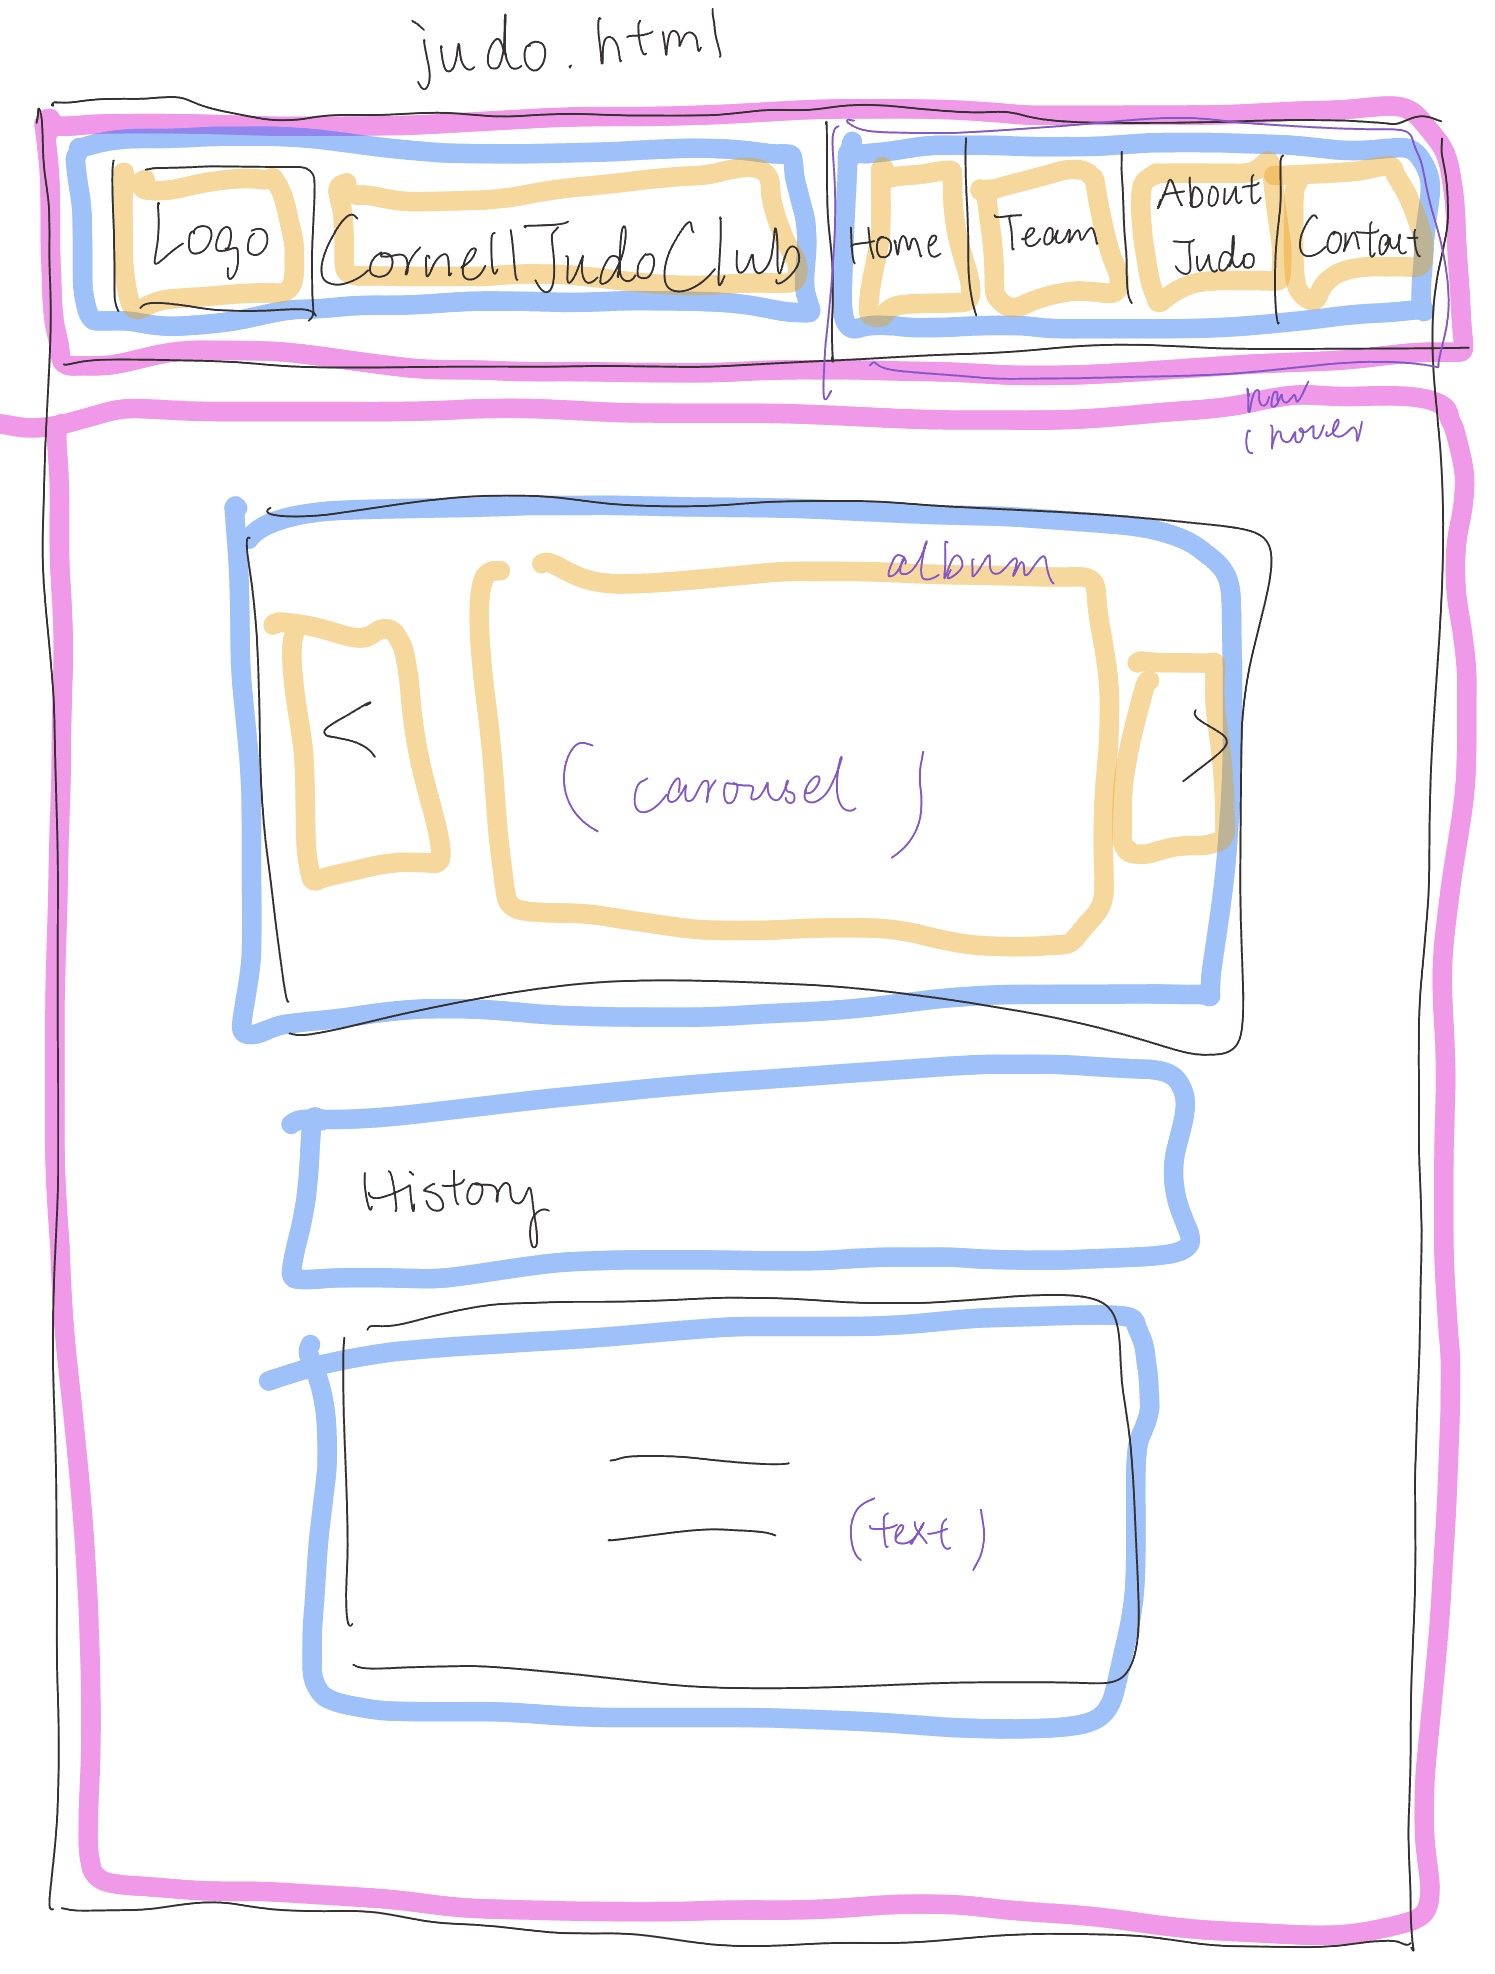 judo.html
Logo
CornellJudoClub
Home
Team
About
Judo
Contact
nav
(hover
album
<
(carousel)
>
History
(text)